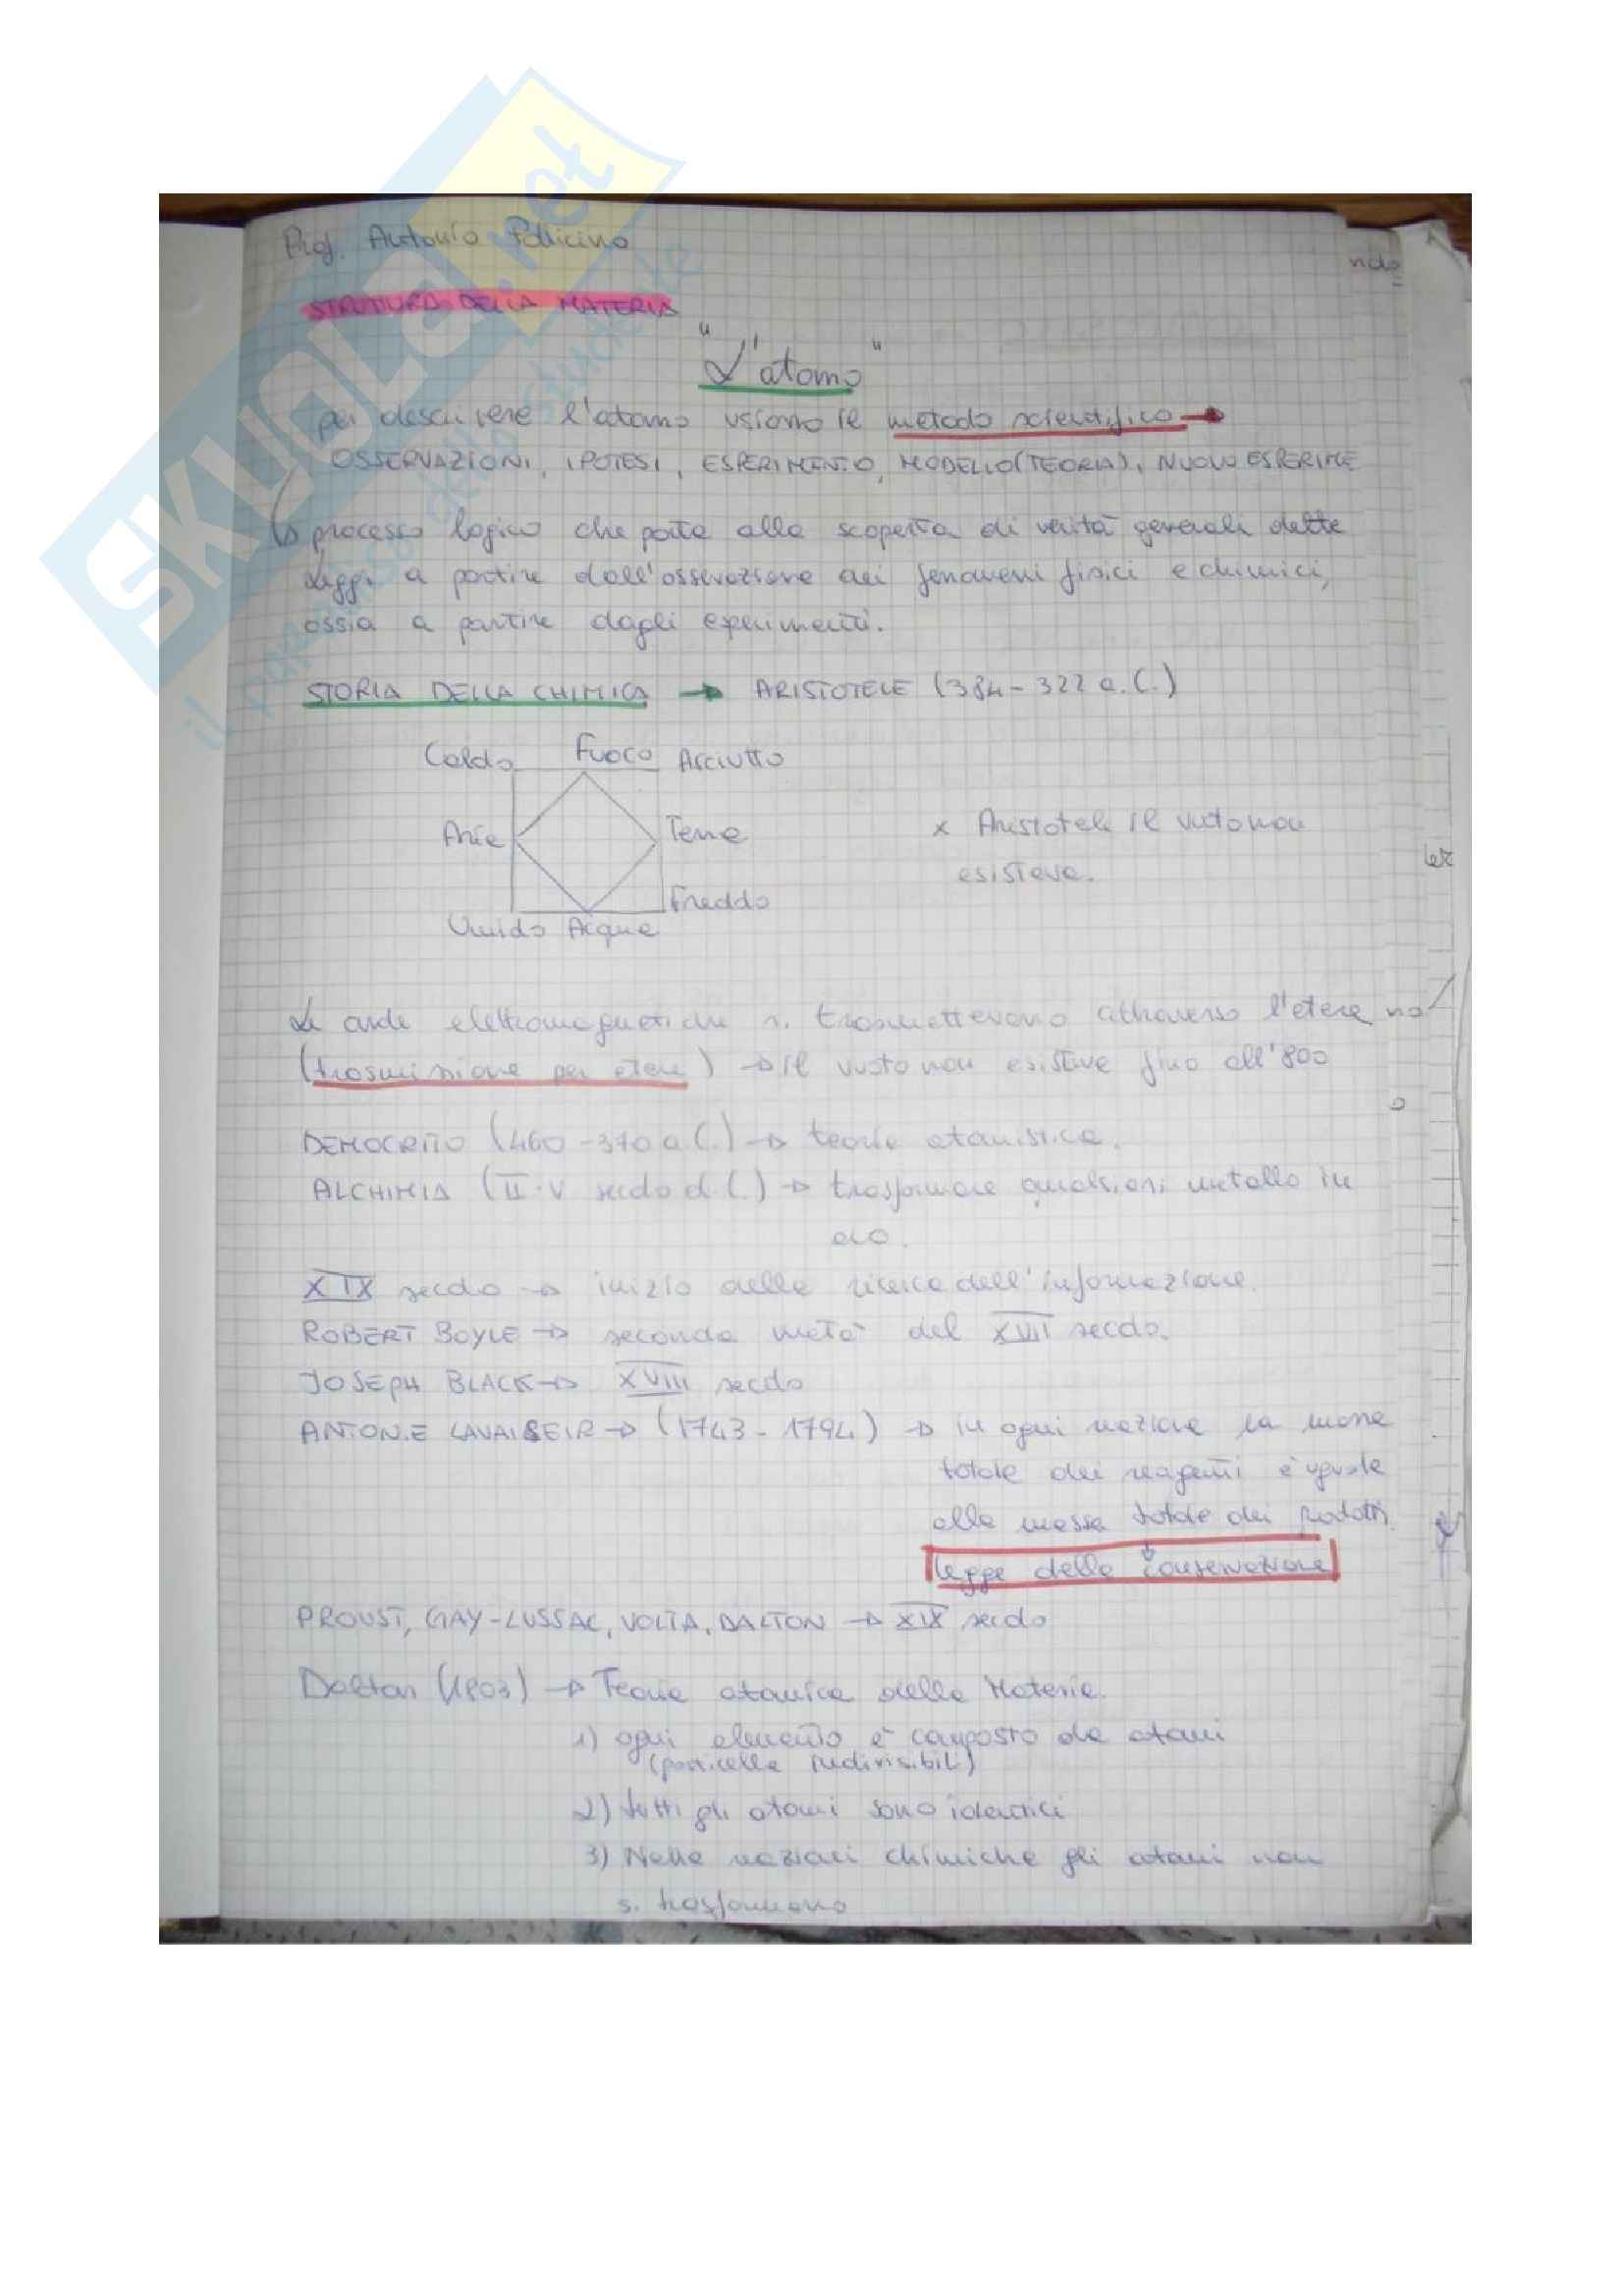 SKUOLA.net
il paradiso dello studente
Prof. Antonio Pollicino
STRUTTURA DELLA MATERIA
"L'atomo"
per descrivere l'atomo usiamo il metodo scientifico →
OSSERVAZIONI, IPOTESI, ESPERIMENTO, MODELLO (TEORIA), NUOVO ESPERIME
processo logico che porta alla scoperta di verità generali dette
Leggi a partire dall'osservazione dei fenomeni fisici e chimici,
ossia a partire dagli esperimenti.
STORIA DELLA CHIMICA → ARISTOTELE (384-322 a.C.)
Caldo Fuoco Asciutto
Aria Terra
x Aristotele il vuoto non
esisteva.
Freddo
Umido Acqua
Le onde elettromagnetiche si trasmettevano attraverso l'etere no
(trasmissione per etere) → il vuoto non esisteva fino all'800
DEMOCRITO (460-370 a.C.) → teoria atomistica.
ALCHIMIA (II-V secolo d.C.) → trasformare qualsiasi metallo in
oro.
XIX secolo → inizio della ricerca dell'informazione.
ROBERT BOYLE → seconda metà del XVII secolo.
JOSEPH BLACK → XVIII secolo
ANTOINE LAVAISEIR → (1743-1794) → in ogni reazione la massa
totale dei reagenti è uguale
alla massa totale dei prodotti.
legge della conservazione
PROUST, GAY-LUSSAC, VOLTA, DALTON → XIX secolo
Dalton (1803) → Teoria atomica della Materia.
1) ogni elemento è composto da atomi
(particelle indivisibili)
2) tutti gli atomi sono identici
3) Nelle reazioni chimiche gli atomi non
si trasformano